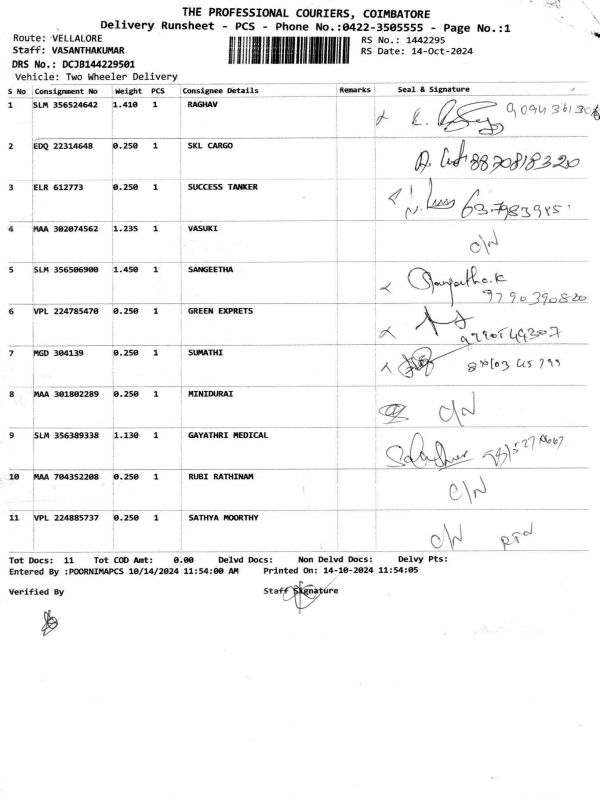 THE PROFESSIONAL COURIERS, COIMBATORE
Delivery Runsheet - PCS - Phone No.:0422-3505555 - Page No.:1
Route: VELLALORE RS No.: 1442295
Staff: VASANTHAKUMAR RS Date: 14-Oct-2024
DRS No.: DCJB144229501
Vehicle: Two Wheeler Delivery
S No Consignment No Weight PCS Consignee Details Remarks Seal & Signature
1 SLM 356524642 1.410 1 RAGHAV
2 EDQ 22314648 0.250 1 SKL CARGO 8870818320
3 ELR 612773 0.250 1 SUCCESS TANKER
4 MAA 302074562 1.235 1 VASUKI C/N
5 SLM 356506900 1.450 1 SANGEETHA Sangeetha.K
9790390820
6 VPL 224785470 0.250 1 GREEN EXPRETS
7 MGD 304139 0.250 1 SUMATHI
8 MAA 301802289 0.250 1 MINIDURAI C/N
9 SLM 356389338 1.130 1 GAYATHRI MEDICAL
10 MAA 704352208 0.250 1 RUBI RATHINAM C/N
11 VPL 224885737 0.250 1 SATHYA MOORTHY C/N
Tot Docs: 11 Tot COD Amt: 0.00 Delvd Docs: Non Delvd Docs: Delvy Pts:
Entered By :POORNIMAPCS 10/14/2024 11:54:00 AM Printed On: 14-10-2024 11:54:05
Verified By Staff Signature